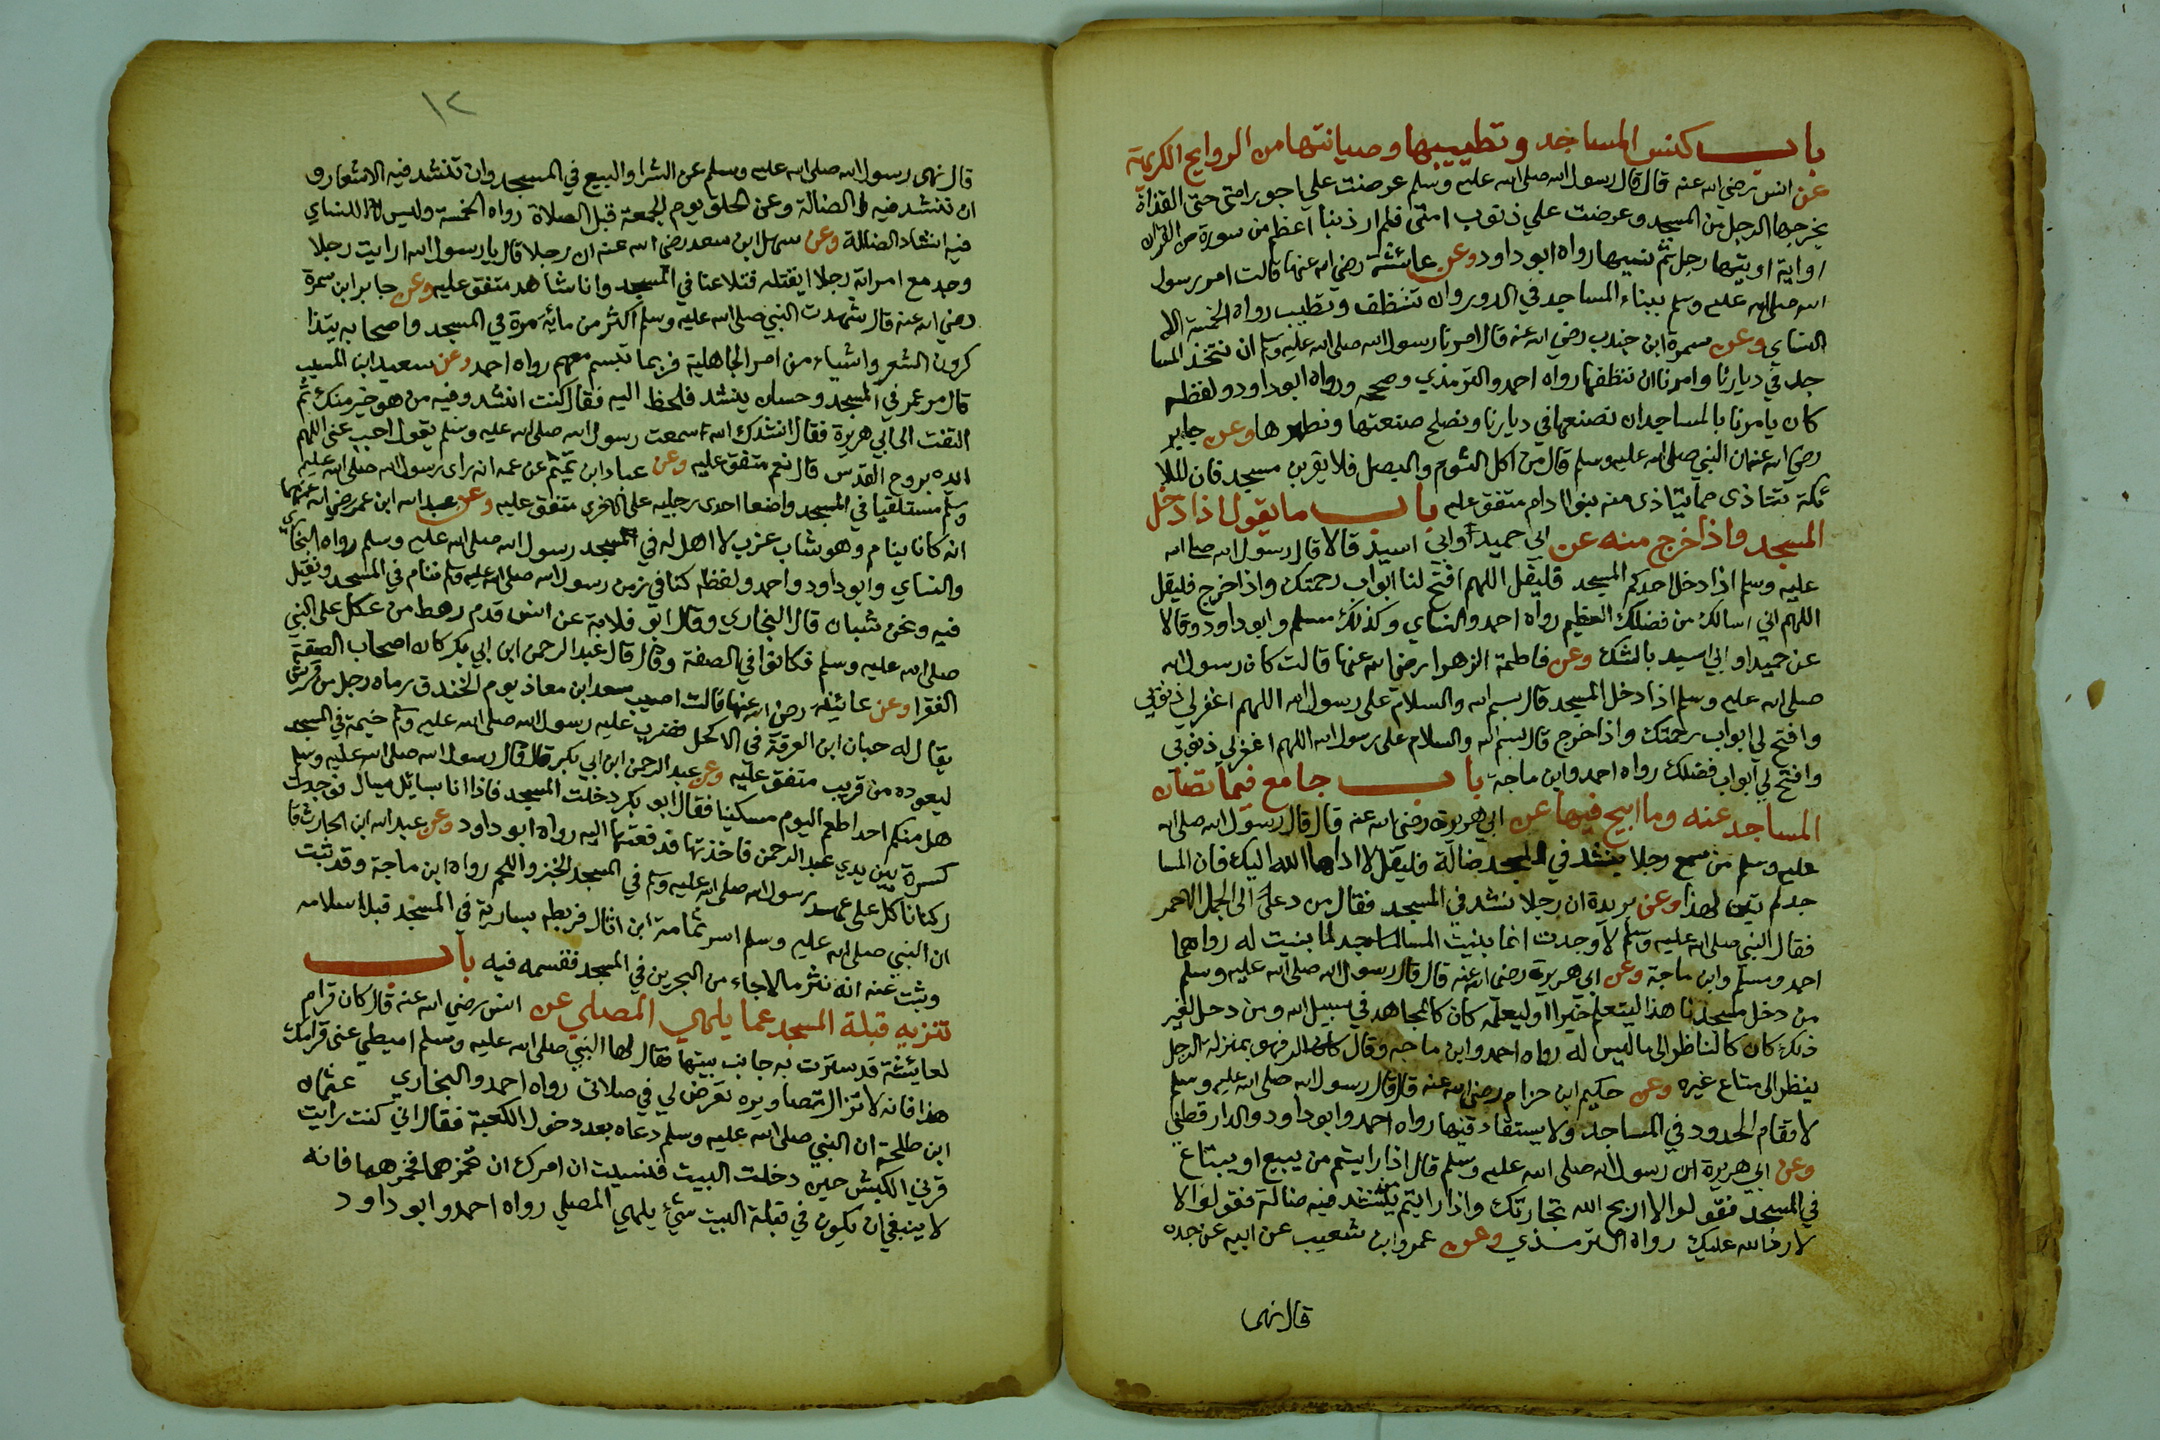 باب كنس المساجد وتطييبها وصيانتها من الروايح الكريهة
عن انس رضي الله عنه قال قال رسول الله صلى الله عليه وسلم عرضت علي اجور امتي حتى القذاة
يخرجها الرجل من المسجد وعرضت علي ذنوب امتي فلم ار ذنبا اعظم من سورة من القران
او اية اوتيها رجل ثم نسيها رواه ابو داود وعن عائشة رضي الله عنها قالت امر رسول
الله صلى الله عليه وسلم ببناء المساجد في الدور وان تنظف وتطيب رواه الخمسة الا
النساي وعن سمرة ابن جندب رضي الله عنه قال امرنا رسول الله صلى الله عليه وسلم ان نتخذ المسا
جد في ديارنا وامرنا ان ننظفها رواه احمد والترمذي وصححه ورواه ابو داود ولفظه
كان يامرنا بالمساجد ان نصنعها في ديارنا ونصلح صنعتها ونطهرها وعن جابر
رضي الله عنه ان النبي صلى الله عليه وسلم قال من اكل الثوم والبصل فلا يقربن مسجد فان الملا
ئكة تتاذى مما يتاذى منه بنوا ادام متفق عليه باب ما يقول اذا دخل
المسجد واذا خرج منه عن ابي حميد او ابي اسيد قالا قال رسول الله صلى الله
عليه وسلم اذا دخل احدكم المسجد فليقل اللهم افتح لنا ابواب رحمتك واذا خرج فليقل
اللهم اني اسالك من فضلك العظيم رواه احمد والنساي وكذلك مسلم وابو داود وقالا
عن حميد او ابي اسيد بالشك وعن فاطمة الزهرا رضي الله عنها قالت كان رسول الله
صلى الله عليه وسلم اذا دخل المسجد قال بسم الله والسلام على رسول الله اللهم اغفر لي ذنوبي
وافتح لي ابواب رحمتك واذا خرج قال بسم الله والسلام على رسول الله اللهم اغفر لي ذنوبي
وافتح لي ابواب فضلك رواه احمد وابن ماجة باب جامع فيما تصان
المساجد عنه وما ابيح فيها عن ابي هريرة رضي الله عنه قال قال رسول الله صلى الله
عليه وسلم من سمع رجلا ينشد في المسجد ضالة فليقل لا اداها الله اليك فان المسا
جد لم تبن لهذا وعن بريدة ان رجلا نشد في المسجد فقال من دعى الى الجمل الاحمر
فقال النبي صلى الله عليه وسلم لا وجدت انما بنيت المساجد لما بنيت له رواهما
احمد ومسلم وابن ماجة وعن ابي هريرة رضي الله عنه قال قال رسول الله صلى الله عليه وسلم
من دخل مسجدنا هذا ليتعلم خيرا او ليعلمه كان كالمجاهد في سبيل الله ومن دخل لغير
ذلك كان كالناظر الى ما ليس له رواه احمد وابن ماجه وقال فهو بمنزلة الرجل
ينظر الى متاع غيره وعن حكيم ابن حزام رضي الله عنه قال قال رسول الله صلى الله عليه وسلم
لا تقام الحدود في المساجد ولا يستقاد فيها رواه احمد وابو داود والدارقطني
وعن ابي هريرة ان رسول الله صلى الله عليه وسلم قال اذا رايتم من يبيع او يبتاع
في المسجد فقولوا لا اربح الله تجارتك واذا رايتم من ينشد فيه ضالة فقولوا لا
لا رد الله عليك رواه الترمذي وعن عمرو ابن شعيب عن ابيه عن جده
قال نهى
١٢
قال نهى رسول الله صلى الله عليه وسلم عن الشرا والبيع في المسجد وان تنشد فيه الاشعار و
ان تنشد فيه الضالة وعن الحلق يوم الجمعة قبل الصلاة رواه الخمسة وليس للنساي
فيه انشاد الضالة وعن سهل ابن سعد رضي الله عنه ان رجلا قال يا رسول الله ارايت رجلا
وجد مع امراته رجلا ايقتله فتلاعنا في المسجد وانا شاهد متفق عليه وعن جابر ابن سمرة
رضي الله عنه قال شهدت النبي صلى الله عليه وسلم اكثر من مائة مرة في المسجد واصحابه يتذا
كرون الشعر واشياء من امر الجاهلية فربما تبسم معهم رواه احمد وعن سعيد ابن المسيب
قال مر عمر في المسجد وحسان ينشد فلحظ اليه فقال كنت انشد وفيه من هو خير منك ثم
التفت الى ابي هريرة فقال انشدك الله اسمعت رسول الله صلى الله عليه وسلم يقول اجب عني اللهم
ايده بروح القدس قال نعم متفق عليه وعن عباد ابن تميم عن عمه انه راى رسول الله صلى الله عليه
وسلم مستلقيا في المسجد واضعا احدى رجليه على الاخرى متفق عليه وعن عبد الله ابن عمر رضي الله عنهما
انه كان ينام وهو شاب عزب لا اهل له في المسجد رسول الله صلى الله عليه وسلم رواه البخاري
والنساي وابو داود واحمد ولفظه كنا في زمن رسول الله صلى الله عليه وسلم ننام في المسجد ونقيل
فيه ونحن شبان قال البخاري وقال ابو قلابة عن انس قدم رهط من عكل على النبي
صلى الله عليه وسلم فكانوا في الصفة وقال قال عبد الرحمن ابن ابي بكر كان اصحاب الصفة
الفقرا وعن عائشة رضي الله عنها قالت اصيب سعد ابن معاذ يوم الخندق رماه رجل من قريش
يقال له حبان ابن العرقة في الاكحل فضرب عليه رسول الله صلى الله عليه وسلم خيمة في المسجد
ليعوده من قريب متفق عليه وعن عبد الرحمن ابن ابي بكر قال قال رسول الله صلى الله عليه وسلم
هل منكم احد اطعم اليوم مسكينا فقال ابو بكر دخلت المسجد فاذا انا بسائل يسال فوجدت
كسرة بين يدي عبد الرحمن فاخذتها فدفعتها اليه رواه ابو داود وعن عبد الله ابن الحارث قا
ل كنا ناكل على عهد رسول الله صلى الله عليه وسلم في المسجد الخبز واللحم رواه ابن ماجة وقد ثبت
ان النبي صلى الله عليه وسلم اسر ثمامة ابن اثال فربطه بسارية في المسجد قبل اسلامه
وثبت عنه انه نثر مالا جاء من البحرين في المسجد فقسمه فيه باب
تنزيه قبلة المسجد عما يلهي المصلي عن انس رضي الله عنه قال كان قرام
لعائشة قد سترت به جانب بيتها فقال لها النبي صلى الله عليه وسلم اميطي عني قرامك
هذا فانه لا تزال تصاويره تعرض لي في صلاتي رواه احمد والبخاري عثمان
ابن طلحة ان النبي صلى الله عليه وسلم دعاه بعد دخول الكعبة فقال اني كنت رايت
قرني الكبش حين دخلت البيت فنسيت ان امرك ان تخمرهما فخمرهما فانه
لا ينبغي ان يكون في قبلة البيت شيء يلهي المصلي رواه احمد وابو داود